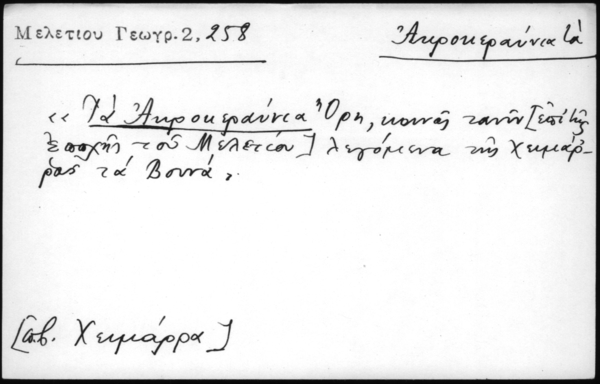 Μελετίου Γεωγρ. 2, 258
Ἀκροκεραύνια τὰ
«Τὰ Ἀκροκεραύνια Ὄρη, κοινῶς τανῦν [ἐπὶ τῆς
ἐποχῆς τοῦ Μελετίου] λεγόμενα τῆς Χειμάρ-
ρας τὰ Βουνά,
[πβ. Χειμάρρα]